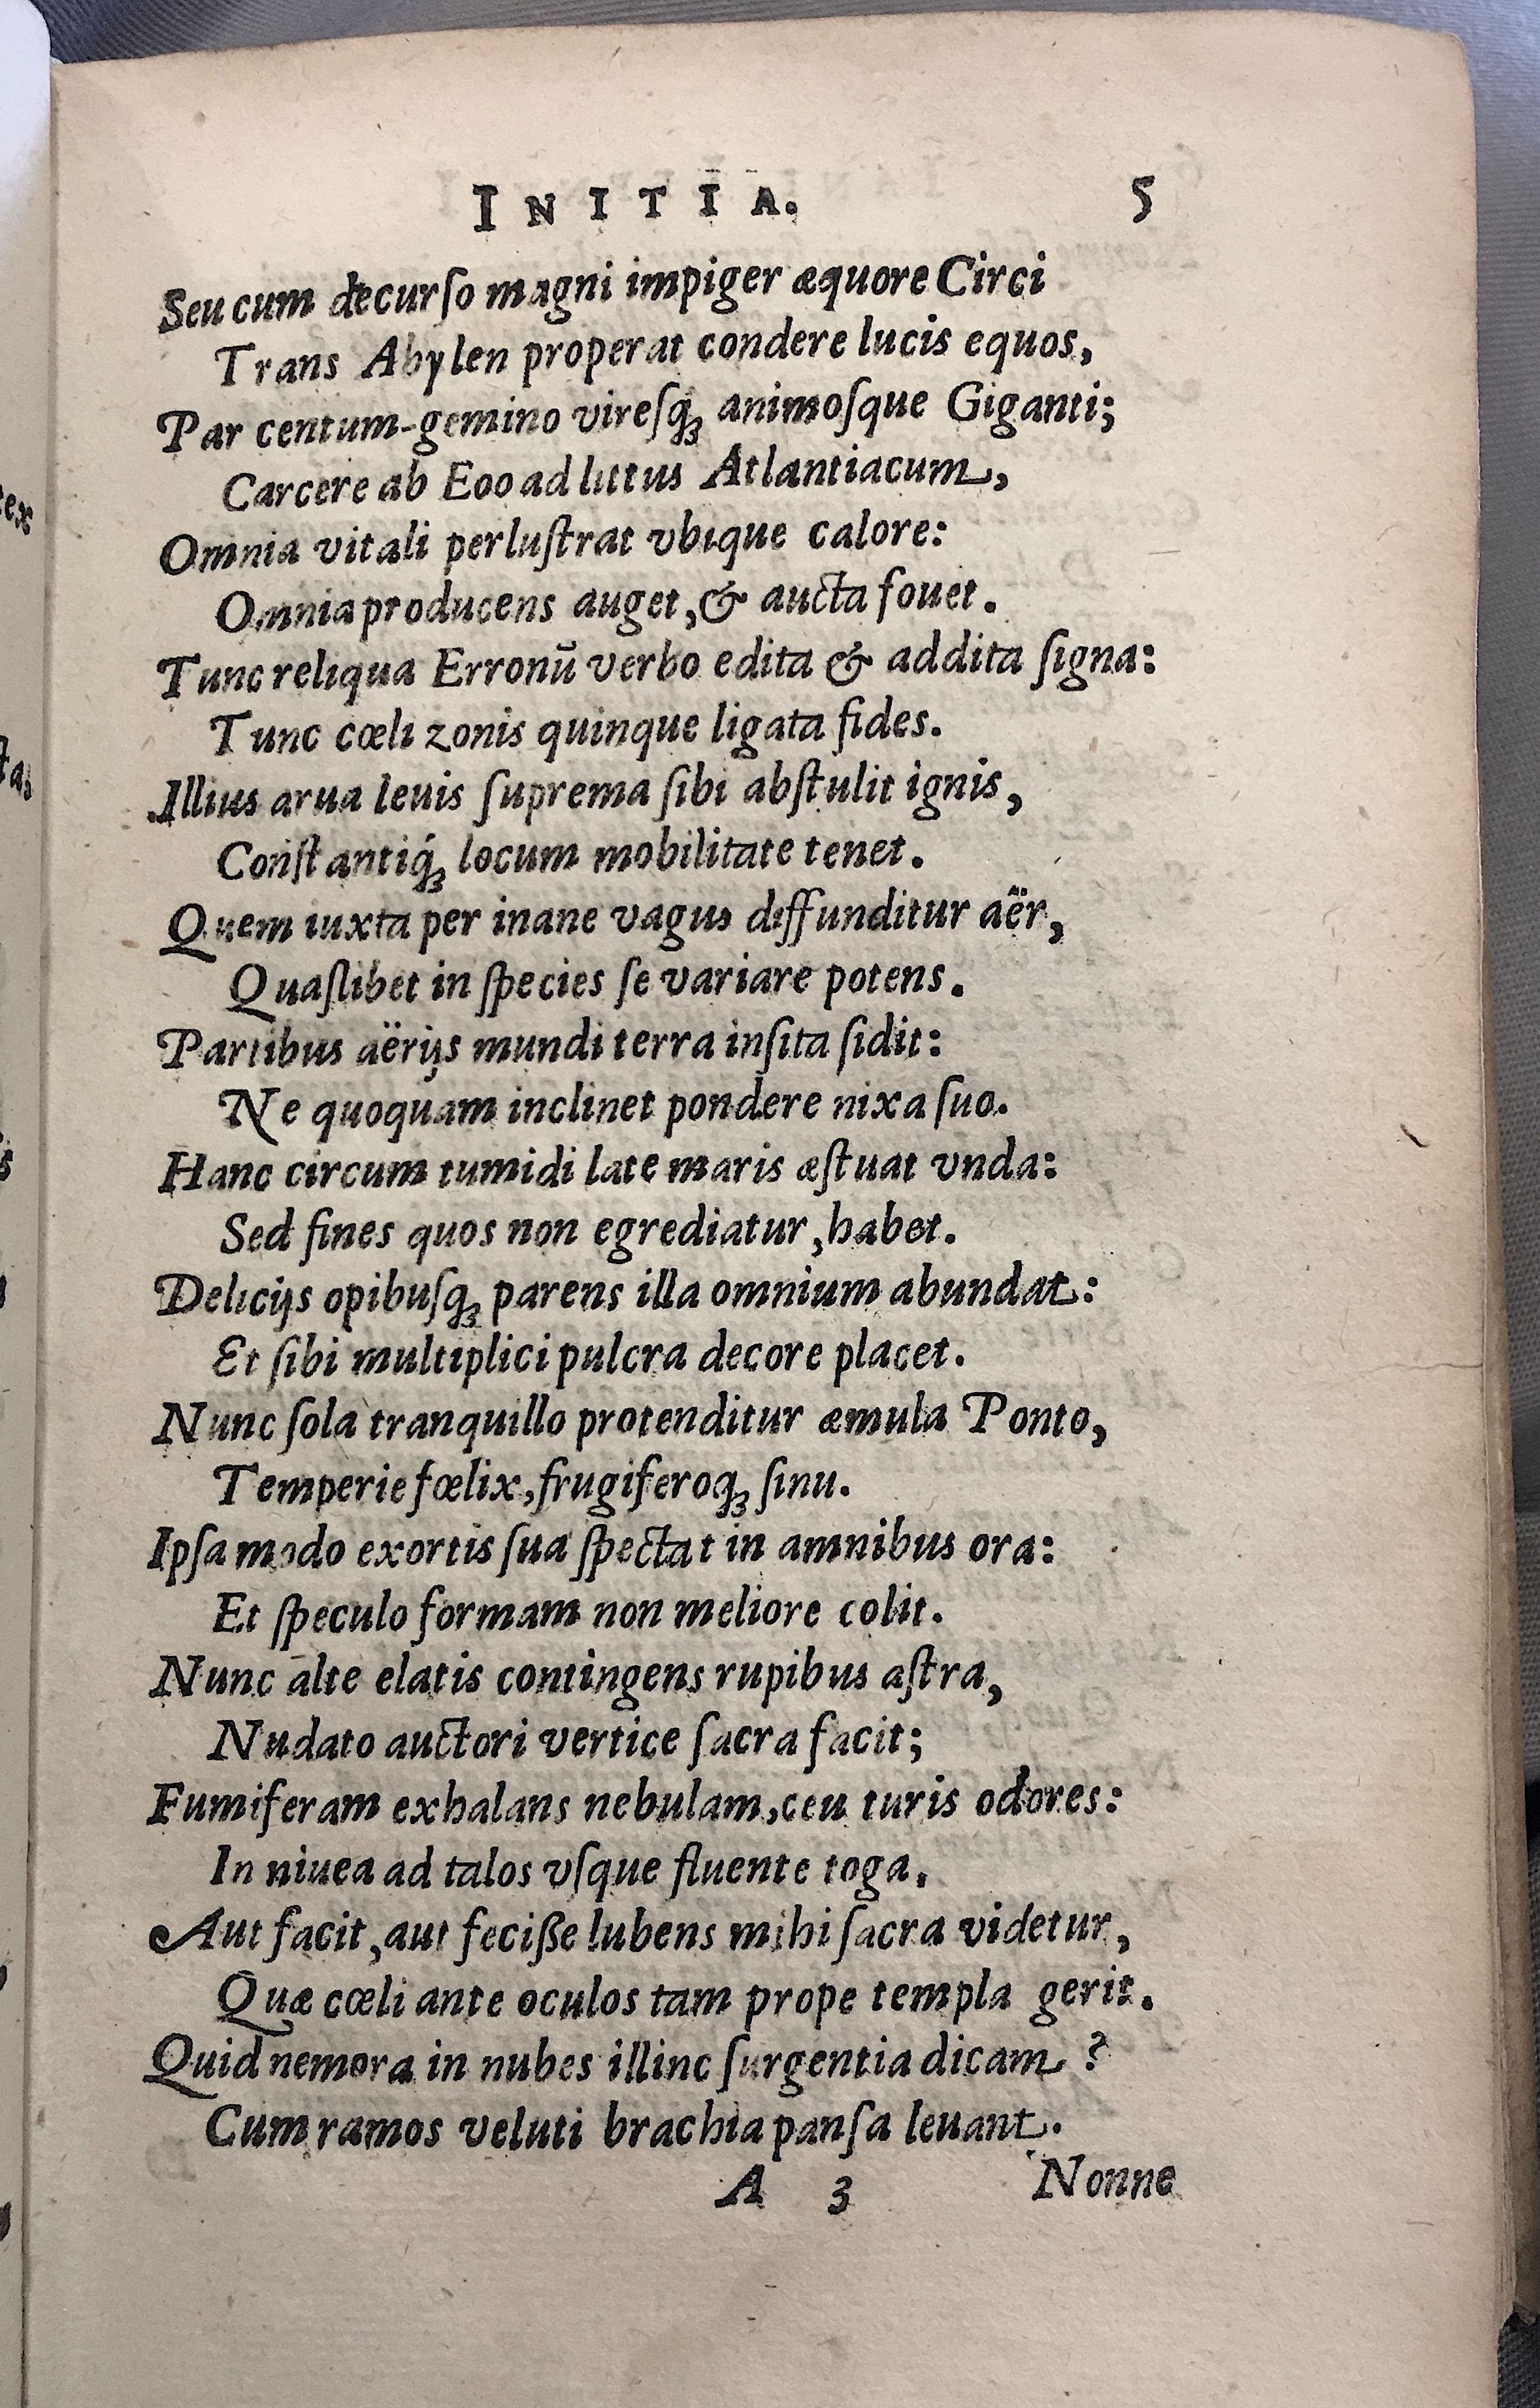 INITIA. 5
Seu cum decurſo magni impiger æquore Circi
Trans Abylen properat condere lucis equos,
Par centum-gemino vireſq́ꝫ animoſque Giganti;
Carcere ab Eoo ad littus Atlantiacum,
Omnia vitali perluſtrat vbique calore:
Omnia producens auget, & aucta fouet.
Tunc reliqua Erronū verbo edita & addita ſigna:
Tunc cœli zonis quinque ligata fides.
Illius arua leuis ſuprema ſibi abſtulit ignis,
Conſtantiq́ꝫ locum mobilitate tenet.
Quem iuxta per inane vagus diffunditur aër,
Quaſlibet in ſpecies ſe variare potens.
Partibus aërijs mundi terra inſita ſidit:
Ne quoquam inclinet pondere nixa ſuo.
Hanc circum tumidi late maris æſtuat vnda:
Sed fines quos non egrediatur, habet.
Delicijs opibuſqꝫ parens illa omnium abundat:
Et ſibi multiplici pulcra decore placet.
Nunc ſola tranquillo protenditur æmula Ponto,
Temperie fœlix, frugiferoqꝫ ſinu.
Ipſa modo exortis ſua ſpectat in amnibus ora:
Et ſpeculo formam non meliore colit.
Nunc alte elatis contingens rupibus aſtra,
Nudato auctori vertice ſacra facit;
Fumiferam exhalans nebulam, ceu turis odores:
In niuea ad talos vſque fluente toga.
Aut facit, aut feciße lubens mihi ſacra videtur,
Quæ cœli ante oculos tam prope templa gerit.
Quid nemora in nubes illinc ſurgentia dicam ?
Cum ramos veluti brachia panſa leuant.
A 3 Nonne